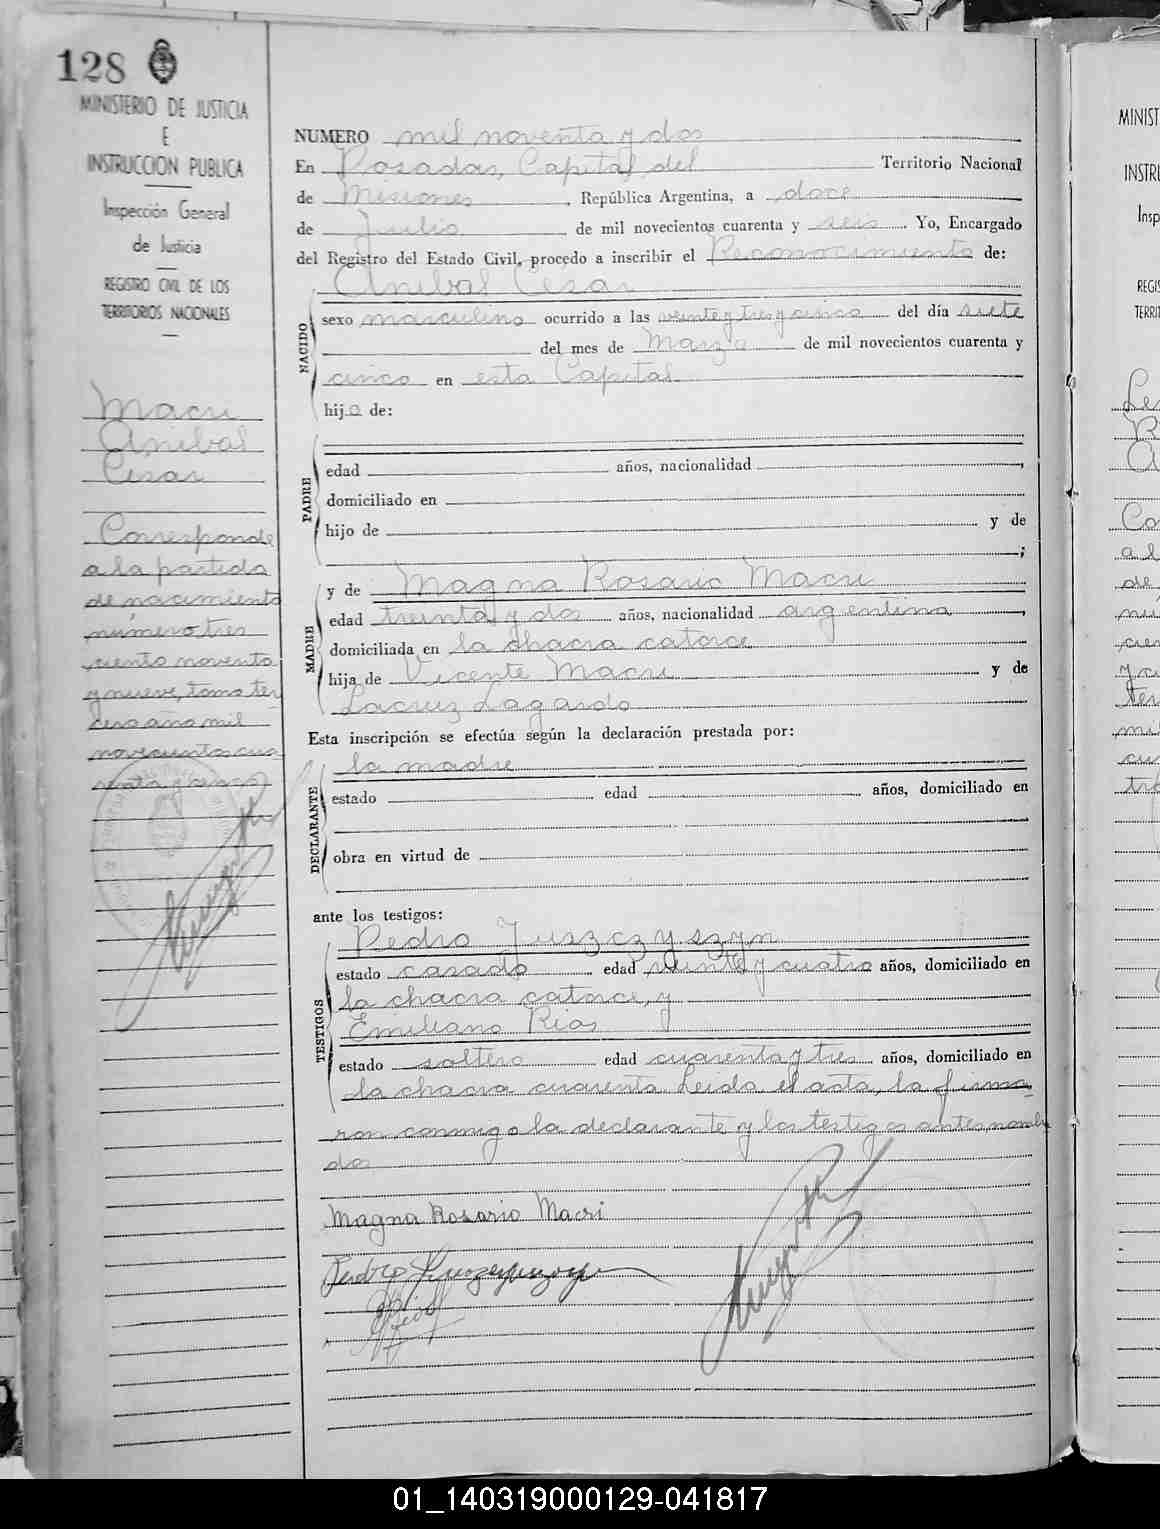 128
MINISTERIO DE JUSTICIA
E
INSTRUCCION PUBLICA
Inspección General
de Justicia
REGISTRO CIVIL DE LOS
TERRITORIOS NACIONALES
Macri
Anibal
Cesar
Corresponde
a la partida
de nacimiento
número tres
ciento noventa
y nueve, tomo ter
cero año mil
novecientos cua
renta y cinco
NUMERO mil noventa y dos
En Posadas, Capital del Territorio Nacional
de Misiones, República Argentina, a doce
de Julio de mil novecientos cuarenta y seis. Yo, Encargado
del Registro del Estado Civil, procedo a inscribir el Reconocimiento de:
Anibal Cesar
NACIDO
sexo masculino ocurrido a las veinte y tres y cinco del día siete
del mes de Marzo de mil novecientos cuarenta y
cinco en esta Capital
hijo de:
PADRE
edad años, nacionalidad ,
domiciliado en
hijo de y de
;
MADRE
y de Magna Rosario Macri
edad treinta y dos años, nacionalidad argentina,
domiciliada en la chacra catorce
hija de Vicente Macri y de
Lacruz Lagardo
Esta inscripción se efectúa según la declaración prestada por:
DECLARANTE
la madre
estado edad años, domiciliado en
obra en virtud de
ante los testigos:
TESTIGOS
Pedro Juszczyszyn
estado casado edad veinte y cuatro años, domiciliado en
la chacra catorce, y
Emiliano Rios
estado soltero edad cuarenta y tres años, domiciliado en
la chacra cuarenta. Leida el acta, la firma
ron conmigo la declarante y los testigos antes nombra
dos
Magna Rosario Macri
Pedro
MINIST
INSTRU
Insp
REGIS
TERRIT
01_140319000129-041817